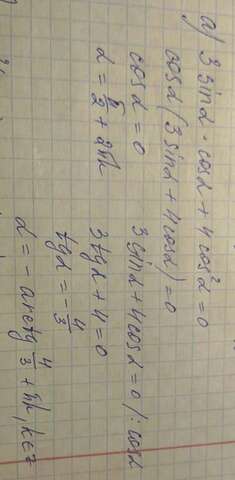 а) 3 sinα · cosα + 4 cos²α = 0
cosα (3 sinα + 4 cosα) = 0
cosα = 0     3 sinα + 4 cosα = 0 /: cosα
α = π/2 + 2πk     3 tgα + 4 = 0
tgα = -4/3
α = - arctg 4/3 + πk, k∈z